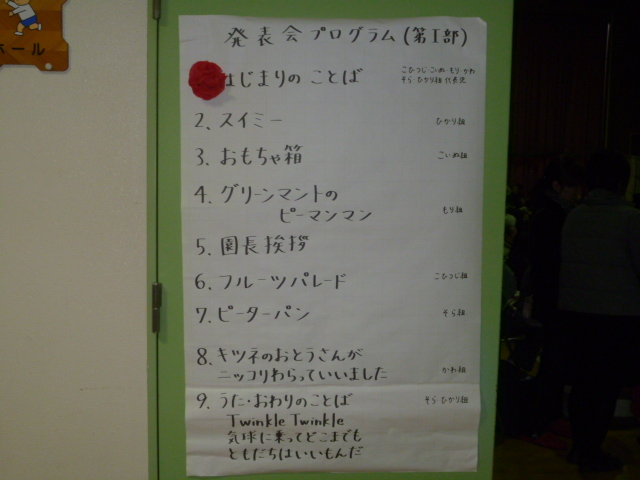 ホール
発表会プログラム(第Ⅰ部)
はじまりのことば
こひつじ・こいぬ・もり・かわ
そら・ひかり組代表児
2、スイミー ひかり組
3、おもちゃ箱 こいぬ組
4、グリーンマントの
ピーマンマン もり組
5、園長挨拶
6、フルーツパレード こひつじ組
7、ピーターパン そら組
8、キツネのおとうさんが
ニッコリわらっていいました かわ組
9、うた・おわりのことば そら・ひかり組
Twinkle Twinkle
気球に乗ってどこまでも
ともだちはいいもんだ